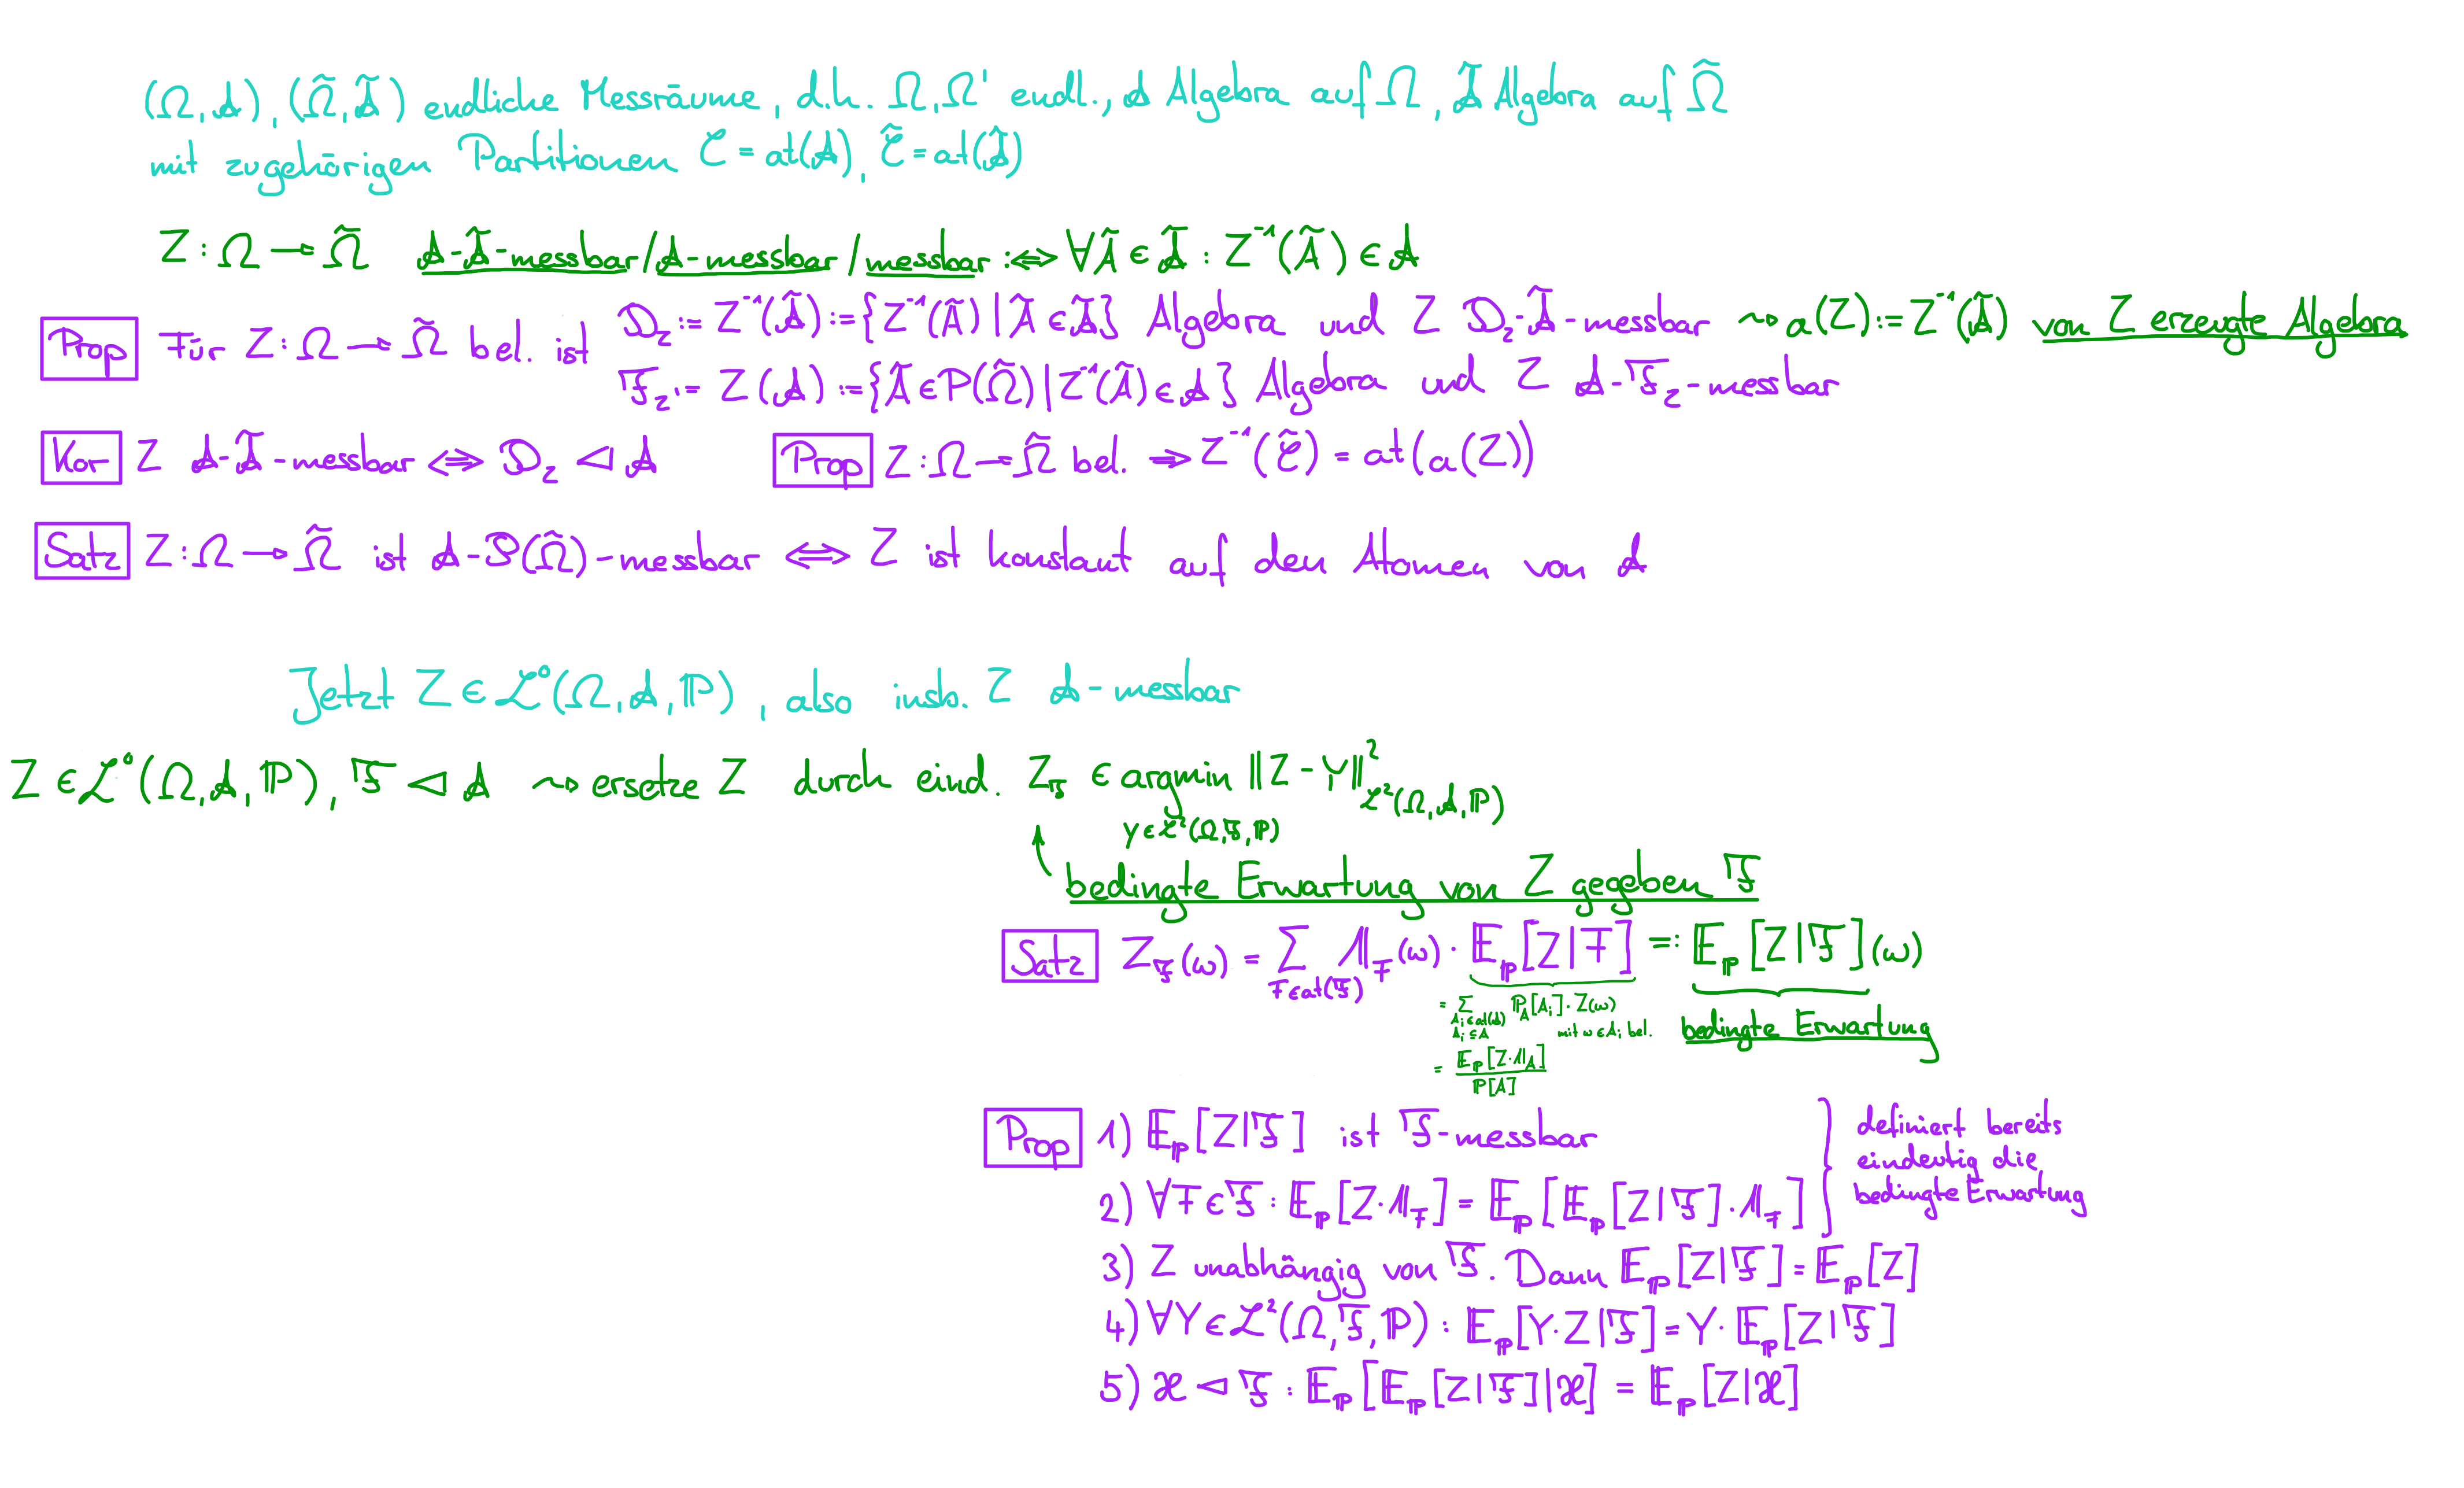 (Ω,𝒜), (Ω̃,𝒜̃) endliche Messräume, d.h. Ω,Ω' endl., 𝒜 Algebra auf Ω, 𝒜̃ Algebra auf Ω̃
mit zugehörigen Partitionen 𝒞 = at(𝒜), 𝒞̃ = at(𝒜̃)
Z: Ω → Ω̃ 𝒜-𝒜̃-messbar/𝒜-messbar/messbar :⇔ ∀Ã ∈ 𝒜̃ : Z⁻¹(Ã) ∈ 𝒜
Prop Für Z: Ω → Ω̃ bel. ist 𝒟_Z := Z⁻¹(𝒜̃) := {Z⁻¹(Ã) | Ã ∈ 𝒜̃} Algebra und Z 𝒟_Z-𝒜̃-messbar ⇝ a(Z) := Z⁻¹(𝒜̃) von Z erzeugte Algebra
ℱ_Z := Z(𝒜) := {Ã ∈ P(Ω̃) | Z⁻¹(Ã) ∈ 𝒜} Algebra und Z 𝒜-ℱ_Z-messbar
Kor Z 𝒜-𝒜̃-messbar ⇔ 𝒟_Z ◁ 𝒜 Prop Z: Ω → Ω̃ bel. ⇒ Z⁻¹(𝒞̃) = at(a(Z))
Satz Z: Ω → Ω̃ ist 𝒜-𝒫(Ω̃)-messbar ⇔ Z ist konstant auf den Atomen von 𝒜
Jetzt Z ∈ ℒ⁰(Ω,𝒜,ℙ), also insb. Z 𝒜-messbar
Z ∈ ℒ⁰(Ω,𝒜,ℙ), ℱ ◁ 𝒜 ⇝ ersetze Z durch eind. Z_ℱ ∈ argmin ‖Z - Y‖²_ℒ²(Ω,𝒜,ℙ)
Y ∈ ℒ²(Ω,ℱ,ℙ)
bedingte Erwartung von Z gegeben ℱ
Satz Z_ℱ(ω) = ∑ 𝟙_F(ω) · 𝔼_ℙ[Z|F] =: 𝔼_ℙ[Z|ℱ](ω)
F∈at(ℱ)
= ∑ ℙ_A[A_i] · Z(ω)
A_i ∈ at(𝒜)
A_i ⊆ A mit ω ∈ A_i bel. bedingte Erwartung
= 𝔼_ℙ[Z·𝟙_A]
ℙ[A]
Prop 1) 𝔼_ℙ[Z|ℱ] ist ℱ-messbar
2) ∀F ∈ ℱ : 𝔼_ℙ[Z·𝟙_F] = 𝔼_ℙ[𝔼_ℙ[Z|ℱ]·𝟙_F]
definiert bereits
eindeutig die
bedingte Erwartung
3) Z unabhängig von ℱ. Dann 𝔼_ℙ[Z|ℱ] = 𝔼_ℙ[Z]
4) ∀Y ∈ ℒ²(Ω,ℱ,ℙ) : 𝔼_ℙ[Y·Z|ℱ] = Y·𝔼_ℙ[Z|ℱ]
5) ℋ ◁ ℱ : 𝔼_ℙ[𝔼_ℙ[Z|ℱ]|ℋ] = 𝔼_ℙ[Z|ℋ]